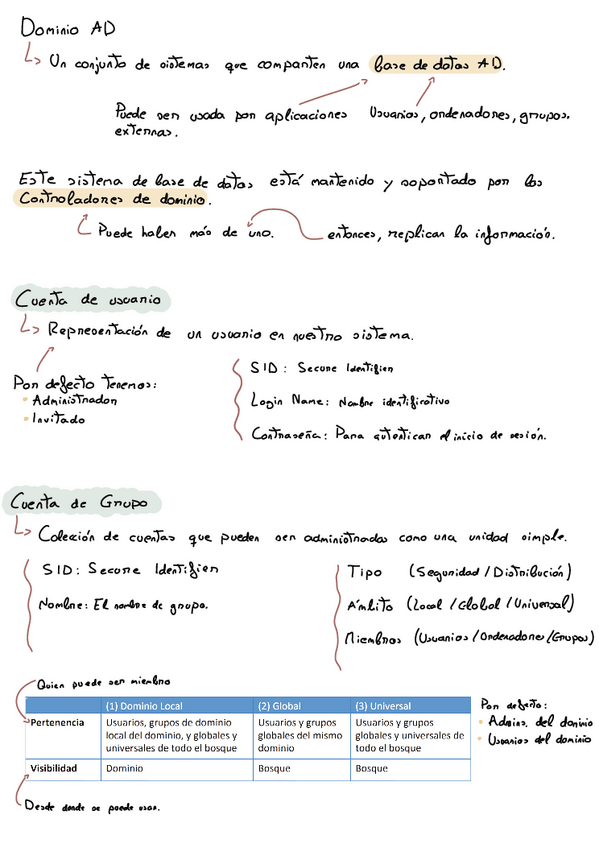 Dominio AD
Un conjunto de sistemas que comparten una base de datos AD.
Puede ser usada por aplicaciones externas.
Usuarios, ordenadores, grupos.
Este sistema de base de datos está mantenido y soportado por los
Controladores de dominio.
Puede haber más de uno.
entonces, replican la información.
Cuenta de usuario
Representación de un usuario en nuestro sistema.
Por defecto tenemos:
• Administrador
• Invitado
SID: Secure Identifier
Login Name: Nombre identificativo
Contraseña: Para autenticar el inicio de sesión.
Cuenta de Grupo
Colección de cuentas que pueden ser administradas como una unidad simple.
SID: Secure Identifier
Nombre: El nombre de grupo.
Tipo (Seguridad / Distribución)
Ámbito (Local / Global / Universal)
Miembros (Usuarios / Ordenadores / Grupos)
Quien puede ser miembro
(1) Dominio Local (2) Global (3) Universal
Pertenencia
Usuarios, grupos de dominio
local del dominio, y globales y
universales de todo el bosque
Usuarios y grupos
globales del mismo
dominio
Usuarios y grupos
globales y universales de
todo el bosque
Visibilidad Dominio Bosque Bosque
Por defecto:
• Admins. del dominio
• Usuarios del dominio
Desde donde se puede usar.